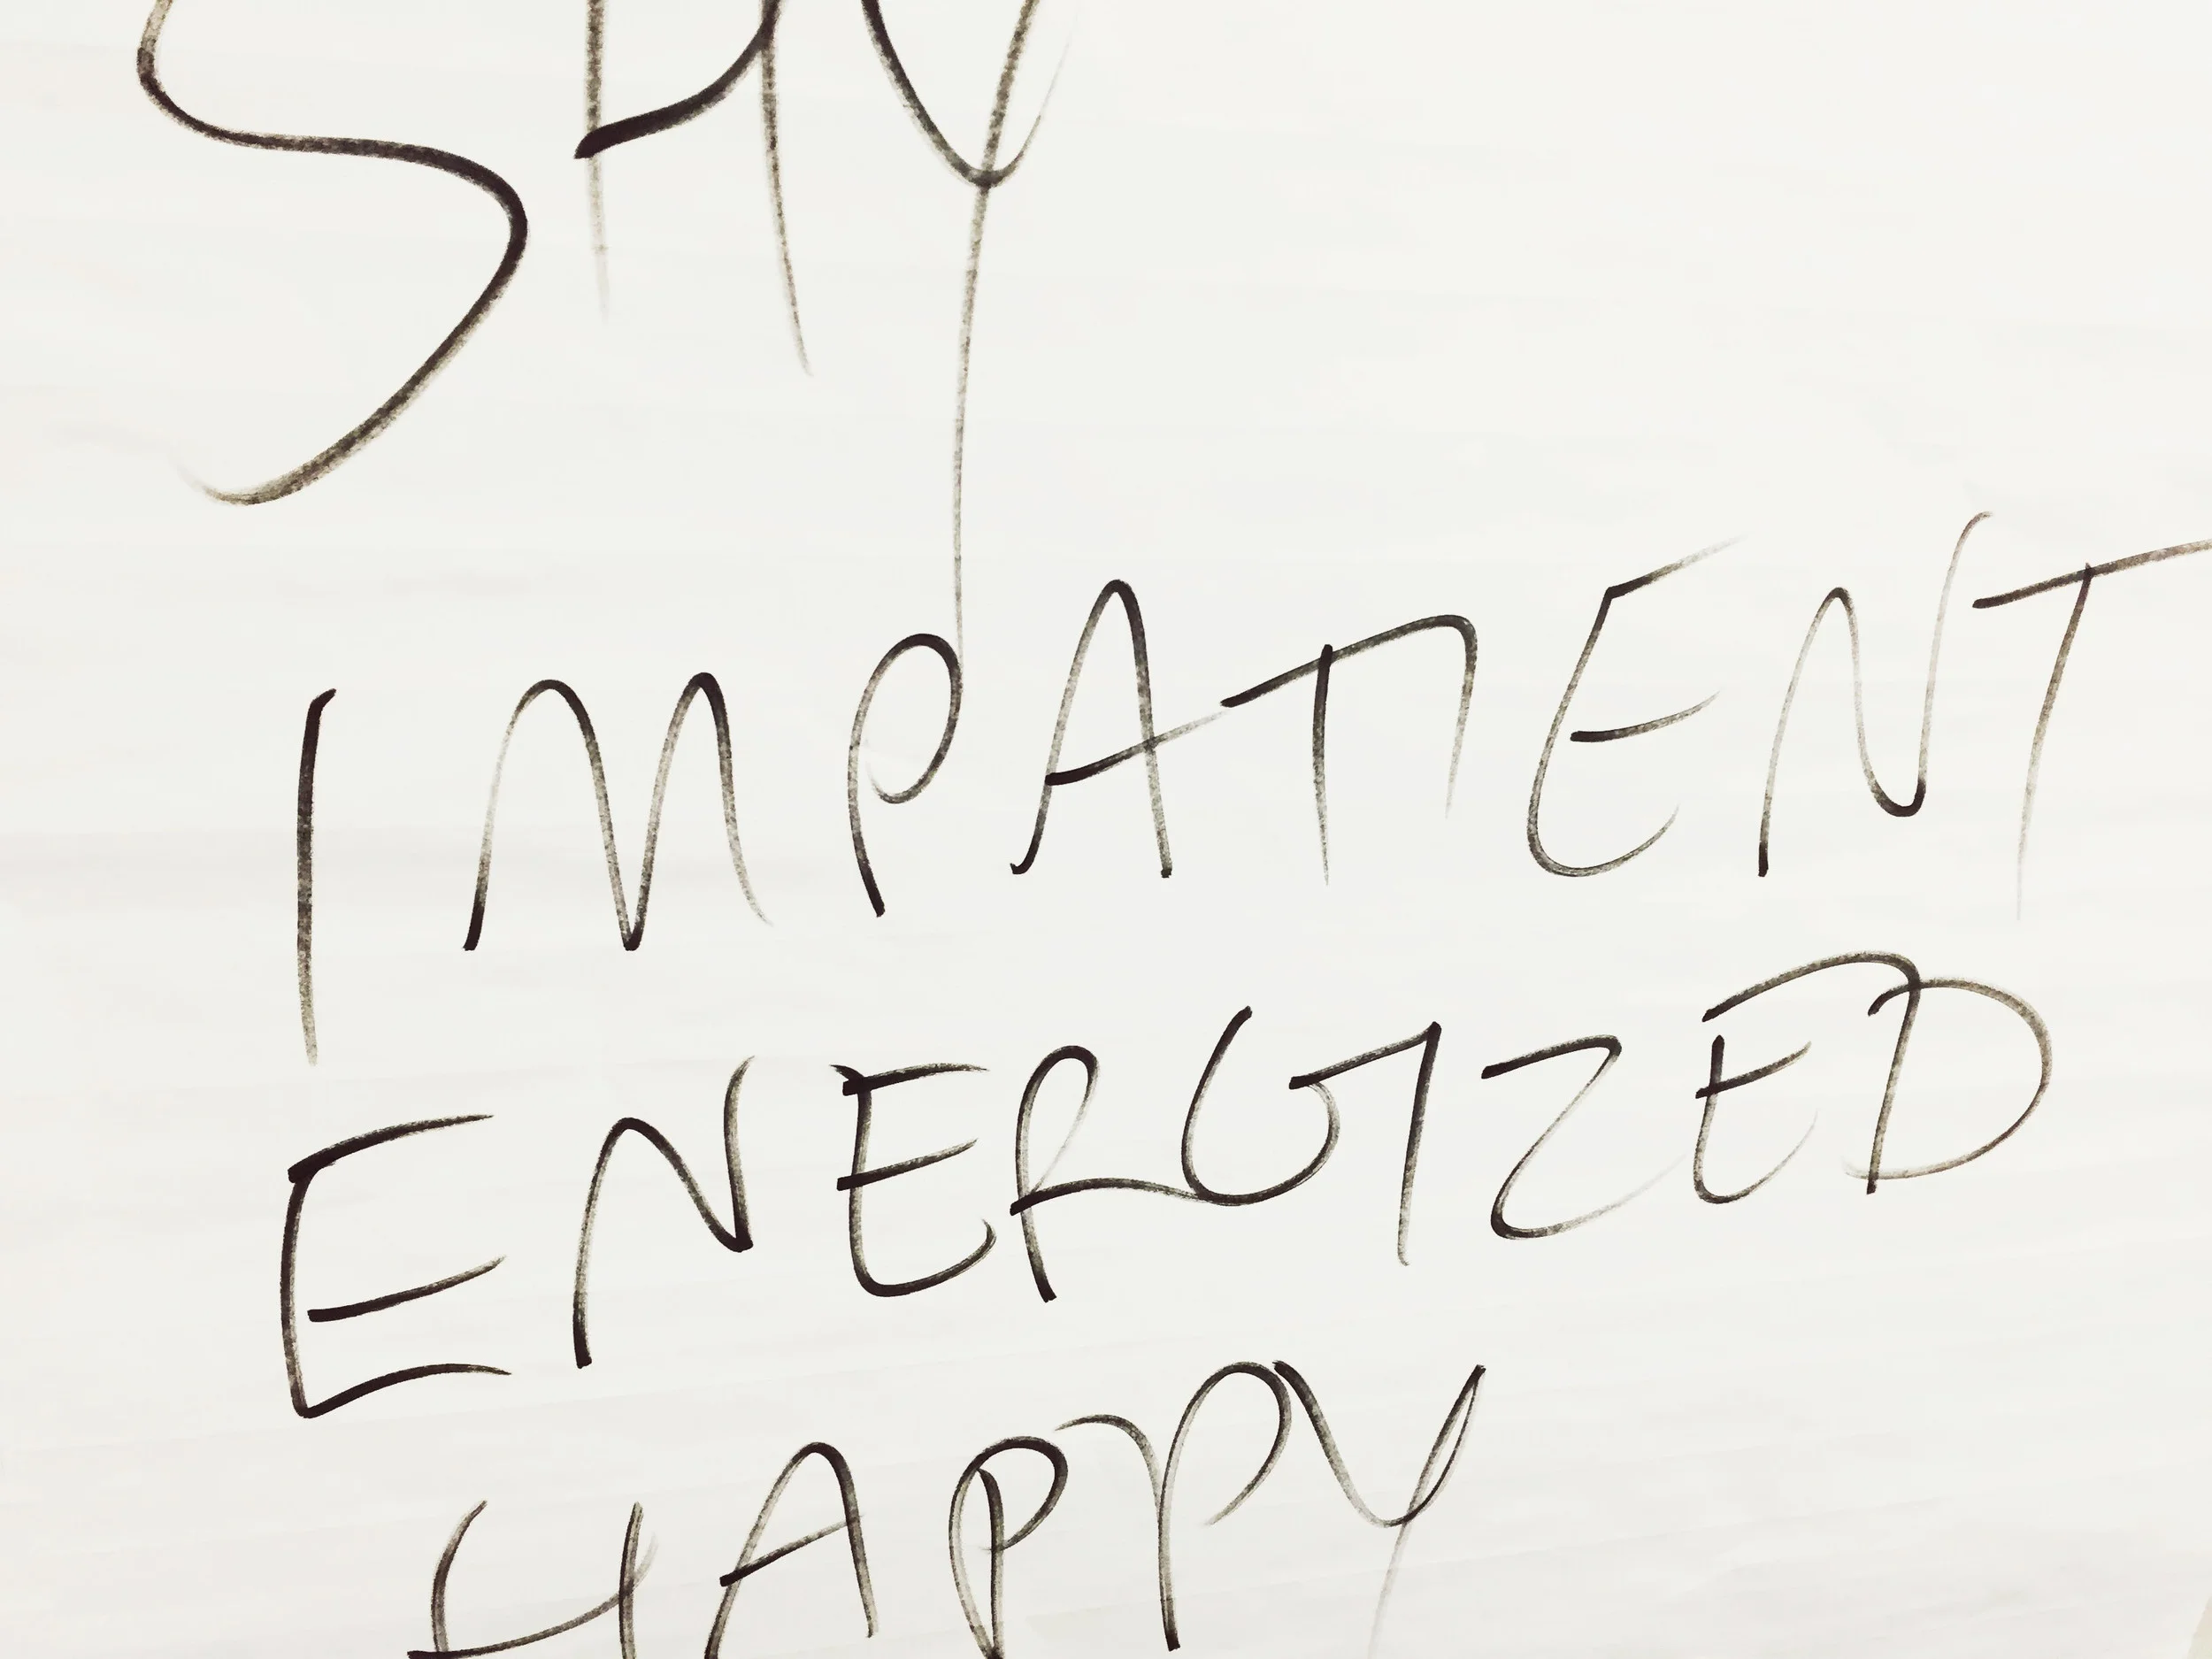 SHY
IMPATIENT
ENERGIZED
HAPPY